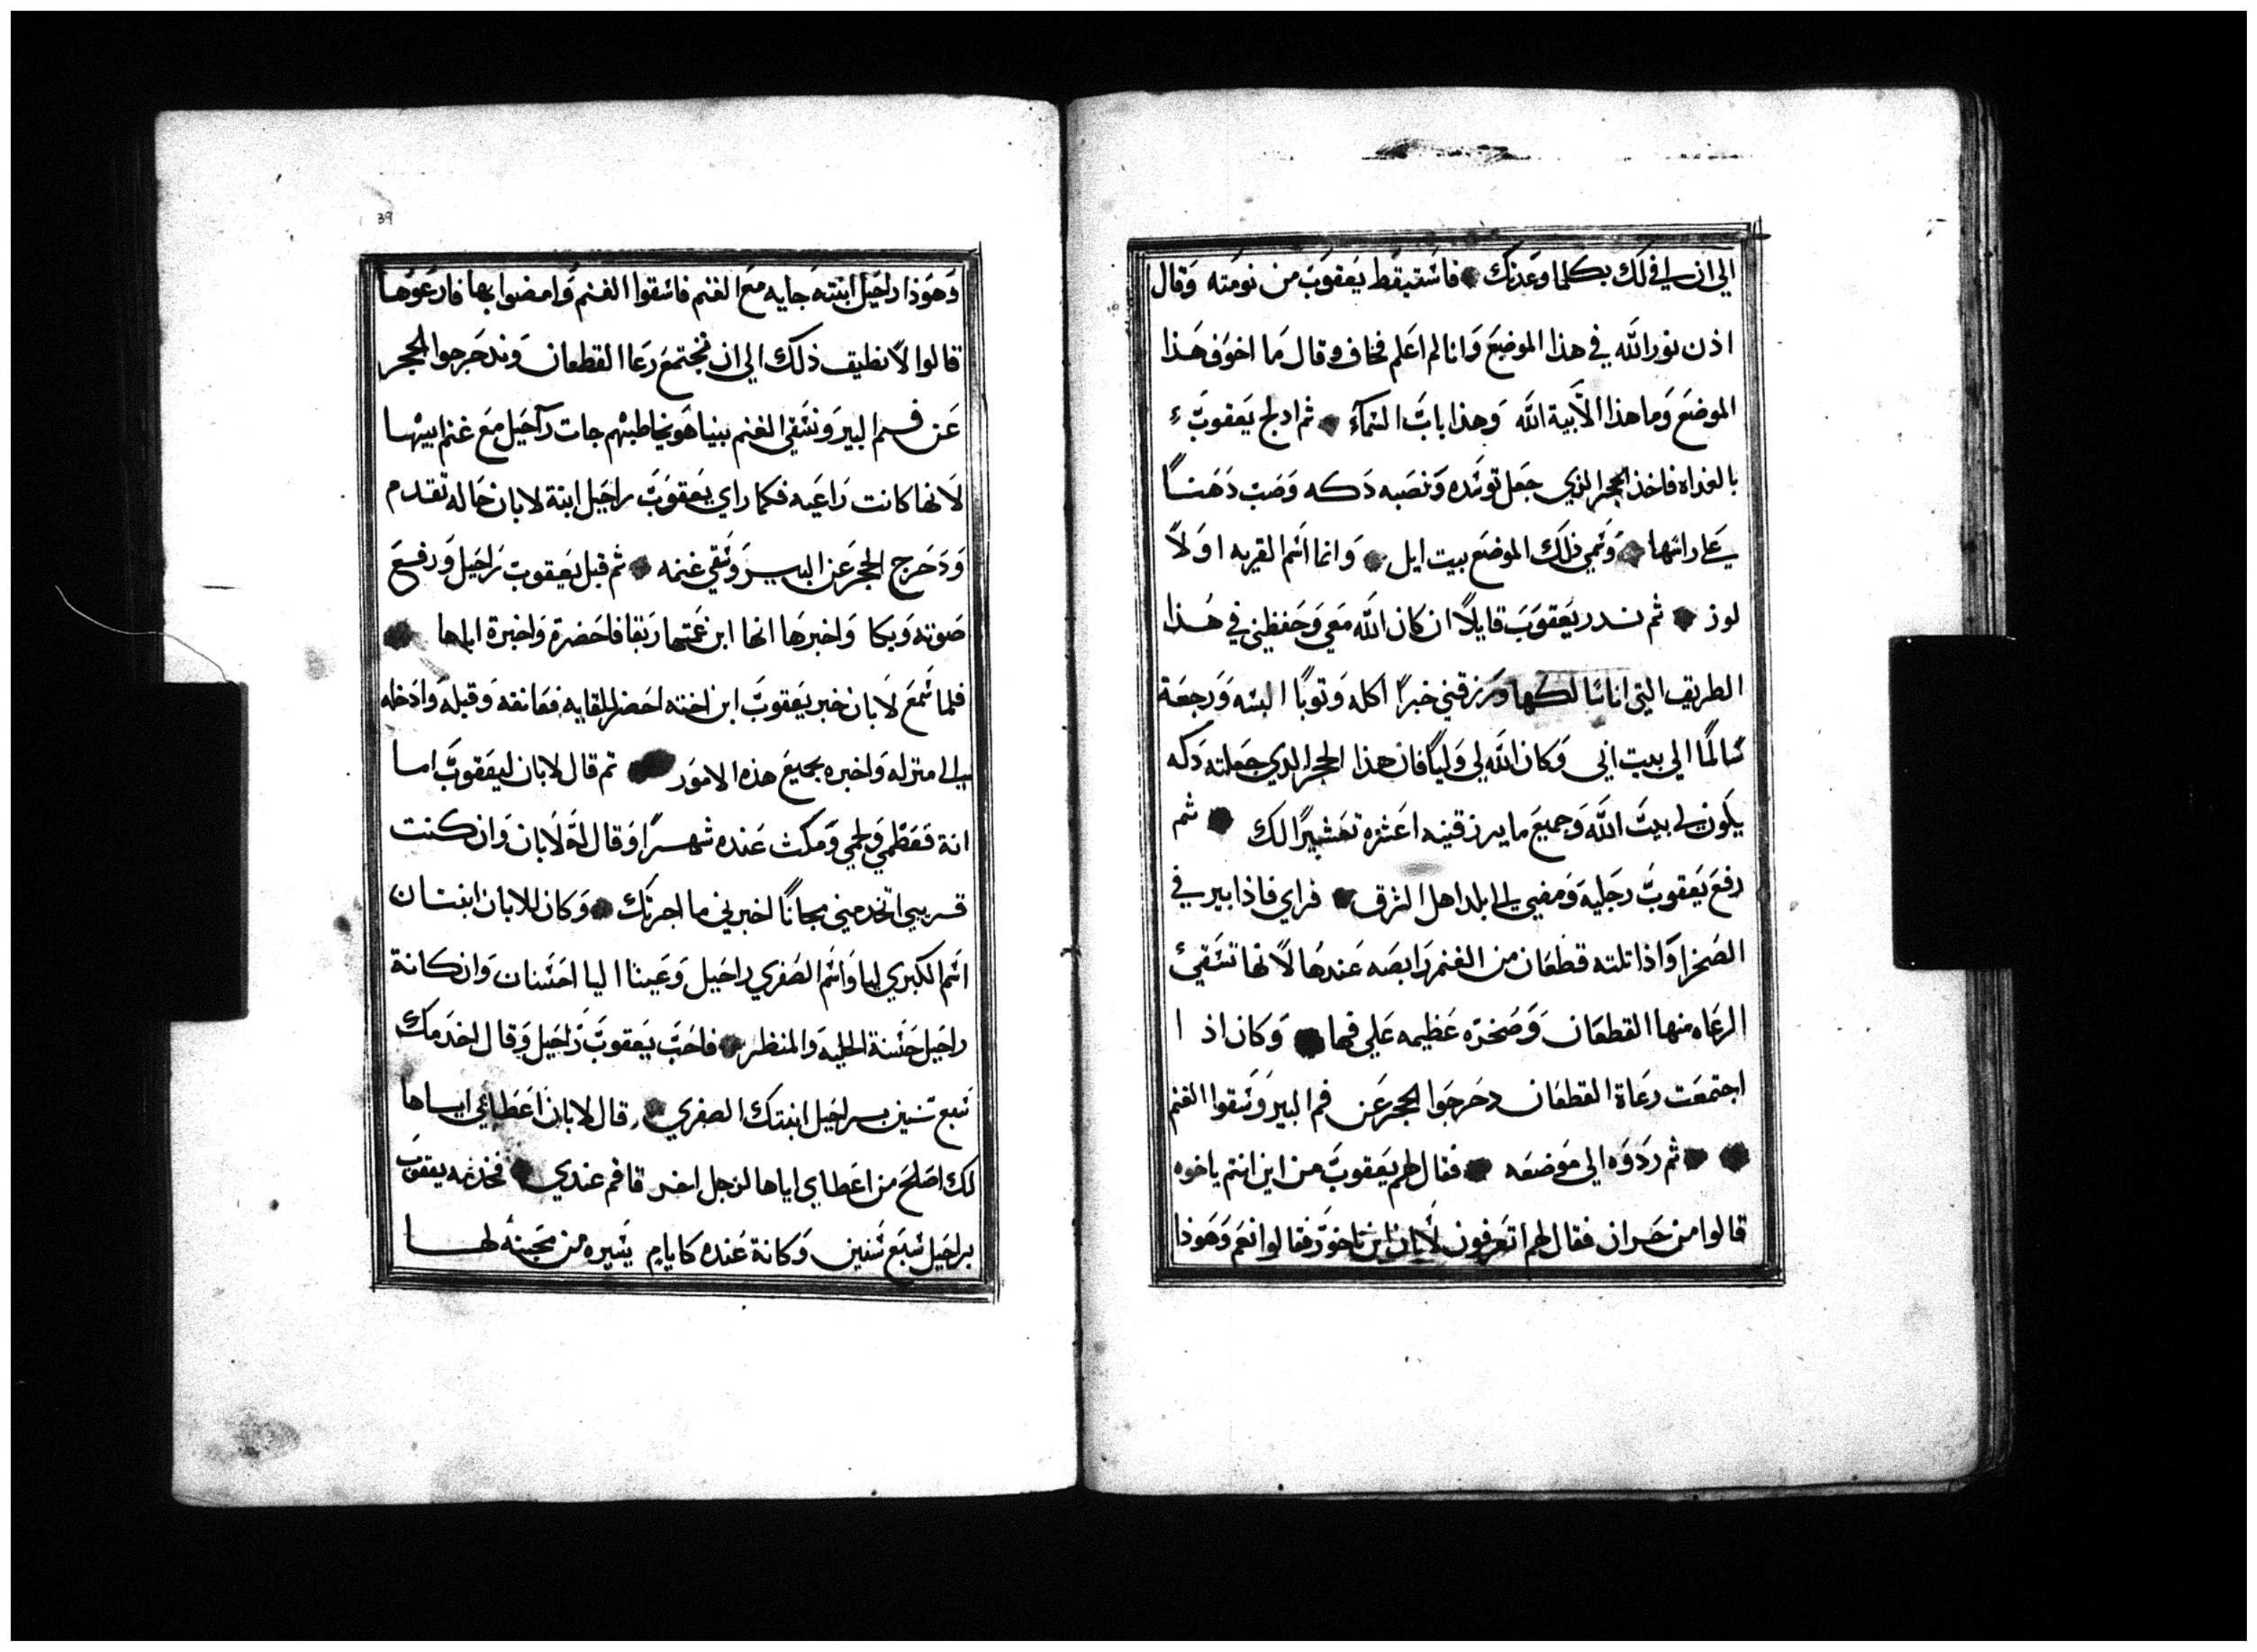 الي ان اوفي لك بكلما وعدتك فاستيقظ يعقوب من نومته وقال
اذن نور الله في هذا الموضع وانا لم اعلم فخاف وقال ما اخوف هذا
الموضع وما هذا الا بية الله وهذا باب السماء ثم ادلج يعقوب
بالغداه فاخذ الحجر الذي جعل توسده ونصبه دكه وصب دهنا
علي راسها وسمي ذلك الموضع بيت ايل وانما اسم القريه اولا
لوز ثم ندر يعقوب قايلا ان كان الله معي وحفظني في هذا
الطريق التي انا سالكها ورزقني خبزا اكله وتوبا البسه ورجعة
سالما الي بيت ابي وكان الله لي وليا فان هذا الحجر الدي جعلته دكه
يكون لي بيت الله وجميع ما يرزقنيه اعشره تعشيرا لك ثم
رفع يعقوب رجليه ومضي الي بلد اهل الشرق فراي فاذا بير في
الصحرا واذا تلته قطعان من الغنم رابصه عندها لانها تسقي
الرعاه منها القطعان وصخره عظيمه علي فمها وكان اذا
اجتمعت رعاة القطعان دحرجوا الحجر عن فم البير وسقوا الغنم
ثم ردوه الي موضعه فقال لهم يعقوب من اين انتم ياخوه
قالوا من حران فقال لهم اتعرفون لابان ابن ناخور فقالوا نعم وهوذا
39
وهوذا راحيل ابنته جايه مع الغنم فاسقوا الغنم وامضوا بها فارعوها
قالوا لا نطيق ذلك الي ان نجتمع رعا القطعان وندحرجوا الحجر
عن فم البير ونسقي الغنم بينما هو يخاطبهم جات راحيل مع غنم ابيها
لانها كانت راعيه فكما راي يعقوب راحيل ابنة لابان خاله تقدم
ودحرج الحجر عن البير وسقي غنمه ثم قبل يعقوب راحيل ورفع
صوته وبكا واخبرها انها ابن عمتها ربقا فاحضرة واخبرة اباها
فلما سمع لابان خبر يعقوب ابن اخته احضر للقايه فعانقه وقبله وادخله
الي منزله واخبره بجميع هذه الامور تم قال لابان ليعقوب اما
انة فعظمي ولحمي ومكث عنده شهرا وقال له لابان وان كنت
قريبي اتخدمني مجانا اخبرني ما اجرتك وكان للابان ابنتان
اسم الكبري ليا واسم الصغري راحيل وعينا اليا احسنان وان كانة
راحيل حسنة الحليه والمنظر فاحب يعقوب راحيل وقال اخدمك
سبع سنين براحيل ابنتك الصغري قال لابان اعطائي اياها
لك اصلح من اعطاي اياها لرجل اخر قاقم عندي فخدمه يعقوب
براحيل سبع سنين وكانة عنده كايام يسيره من محبته لها